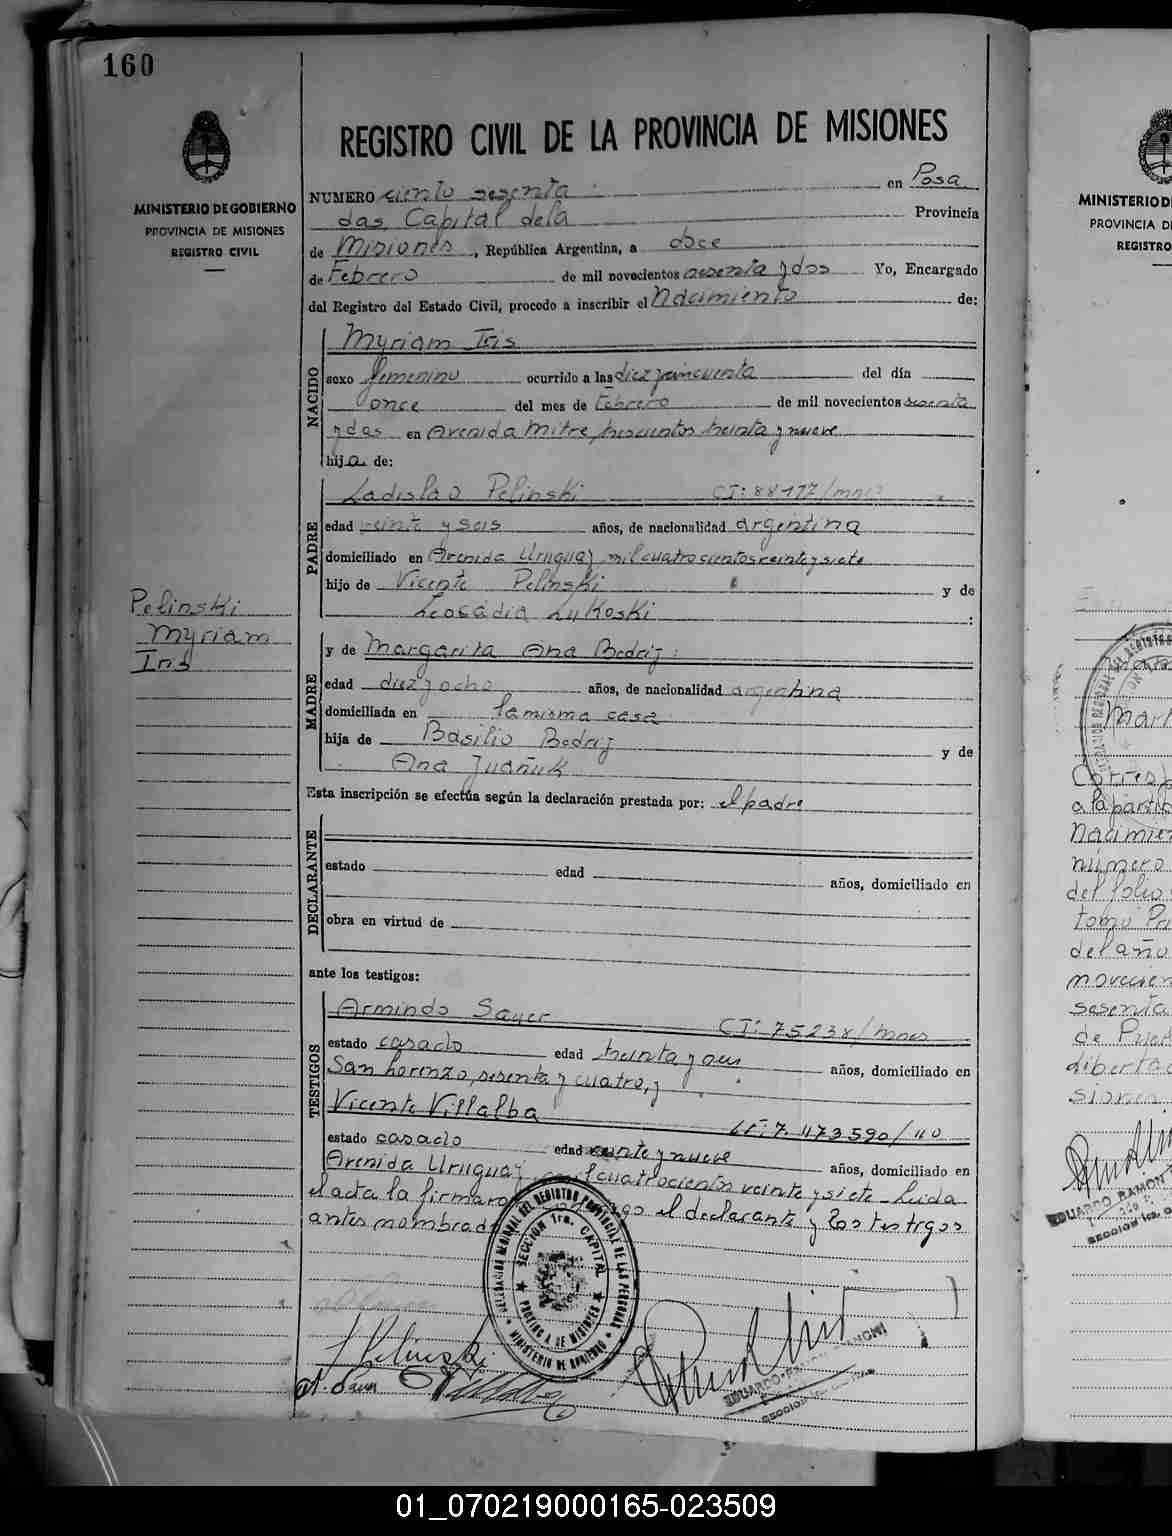 160
MINISTERIO DE GOBIERNO
PROVINCIA DE MISIONES
REGISTRO CIVIL
REGISTRO CIVIL DE LA PROVINCIA DE MISIONES
NUMERO ciento sesenta en Posa
das, Capital de la Provincia
de Misiones, República Argentina, a doce
de Febrero de mil novecientos sesenta y dos Yo, Encargado
del Registro del Estado Civil, procedo a inscribir el Nacimiento de:
NACIDO
Myriam Iris
sexo femenino ocurrido a las diez y cincuenta del día
once del mes de febrero de mil novecientos sesenta
y dos en Avenida Mitre, trescientos treinta y nueve
hija de:
PADRE
Ladislao Pelinski CI: 88177/mnes
edad veinte y seis años, de nacionalidad argentina
domiciliado en Avenida Uruguay mil cuatrocientos veinte y siete
hijo de Vicente Pelinski y de
Leocadia Lukoski :
Pelinski
Myriam
Iris
MADRE
y de Margarita Ana Bedrij :
edad diez y ocho años, de nacionalidad argentina
domiciliada en la misma casa
hija de Basilio Bedrij y de
Ana Juañuk
Esta inscripción se efectúa según la declaración prestada por: el padre
DECLARANTE
estado edad años, domiciliado en
obra en virtud de
ante los testigos:
TESTIGOS
Armindo Sauer CI: 75238/mnes
estado casado edad treinta y años, domiciliado en
San Lorenzo, sesenta y cuatro, y
Vicente Villalba 7.473.590/
estado casado edad veinte y nueve años, domiciliado en
Avenida Uruguay, mil cuatrocientos veinte y siete - Leida
el acta la firmaron el declarante y los testigos
antes nombrados
DELEGACION REGIONAL DEL REGISTRO PROVINCIAL DE LAS PERSONAS
SECCION 1ra. CAPITAL
PROVINCIA DE MISIONES
MINISTERIO DE GOBIERNO
L Pelinski
A. Sauer
EDUARDO RAMON
MINISTERIO D
PROVINCIA D
REGISTRO
Corresp
a la partid
Nacimien
número
del folio
tomo Pri
del año
novecien
sesenta
de Puer
libertad
siones
EDUARDO RAMON
01_070219000165-023509